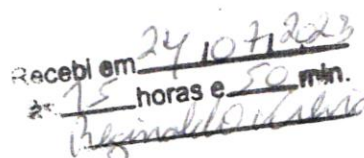 Recebi em 24/07/2023
às 15 horas e 50 min.
Reginaldo